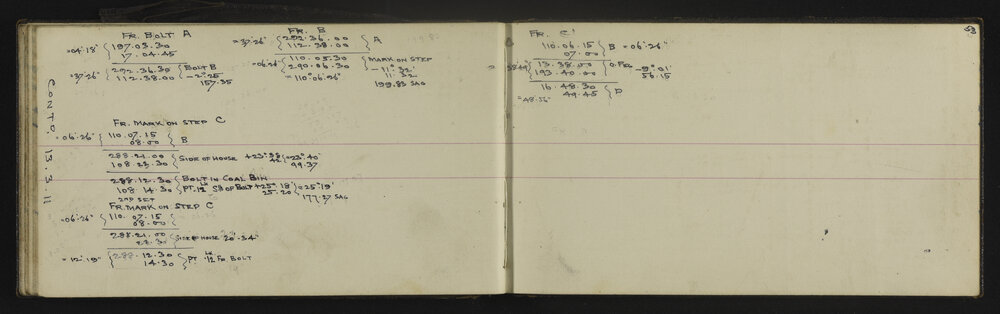 FR. BOLT A
=04'18" 197.03.30
17.04.45
=37'26" 292.36.30 BOLT B
112.38.00 - 2°25
157.35
FR. B
=37'26" 292.36.00 A
112.38.00
=06'26 110.05.30 MARK ON STEP
290.06.30 - 11° 32'
=110°06'26" 11.32
199.83 SAG
CONTD. 13.3.11
FR. MARK ON STEP C
=06'26" 110.07.15 B
08.00
288.21.00 SIDE OF HOUSE +23° =23°40'
108.23.30 99.37
288.12.30 BOLT IN COAL BIN
108.14.30 PT. .12 OF BOLT +25° 18' =25°19'
25.20 177.27 SAG
2ND SET
FR. MARK ON STEP C
=06'26" 110.07.15
08.00
288.21.00 SIDE OF HOUSE 20".34"
=12'19" 288.12.30 PT. .12 FR. BOLT
14.30
53
FR. C'
110.06.15 B =06'26"
07.00
13.38.00 O. PEG -9°01'
193.40.00 56.15
16.48.30 D
49.45
=48'56"